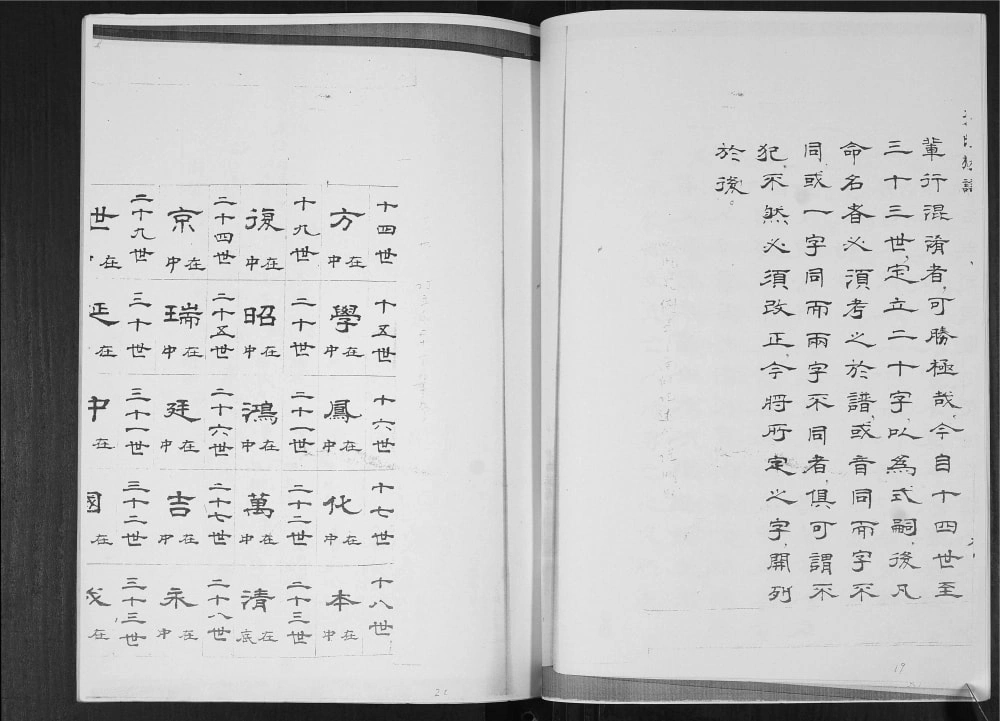 輩行混淆者,可勝極哉,今自十四世至
三十三世,定立二十字,以為式嗣,後凡
命名者必須考之於譜,或音同而字不
同,或一字同而兩字不同者,俱可謂不
犯,不然必須改正,今將所定之字,開列
於後。
十四世 十五世 十六世 十七世 十八世
方在中 學在中 鳳在中 化在中 本在中
十九世 二十世 二十一世 二十二世 二十三世
復在中 昭在中 鴻在中 萬在中 清在底
二十四世 二十五世 二十六世 二十七世 二十八世
京在中 瑞在中 廷在中 吉在中 永在中
二十九世 三十世 三十一世 三十二世 三十三世
世在 在 中在 國在 在
19